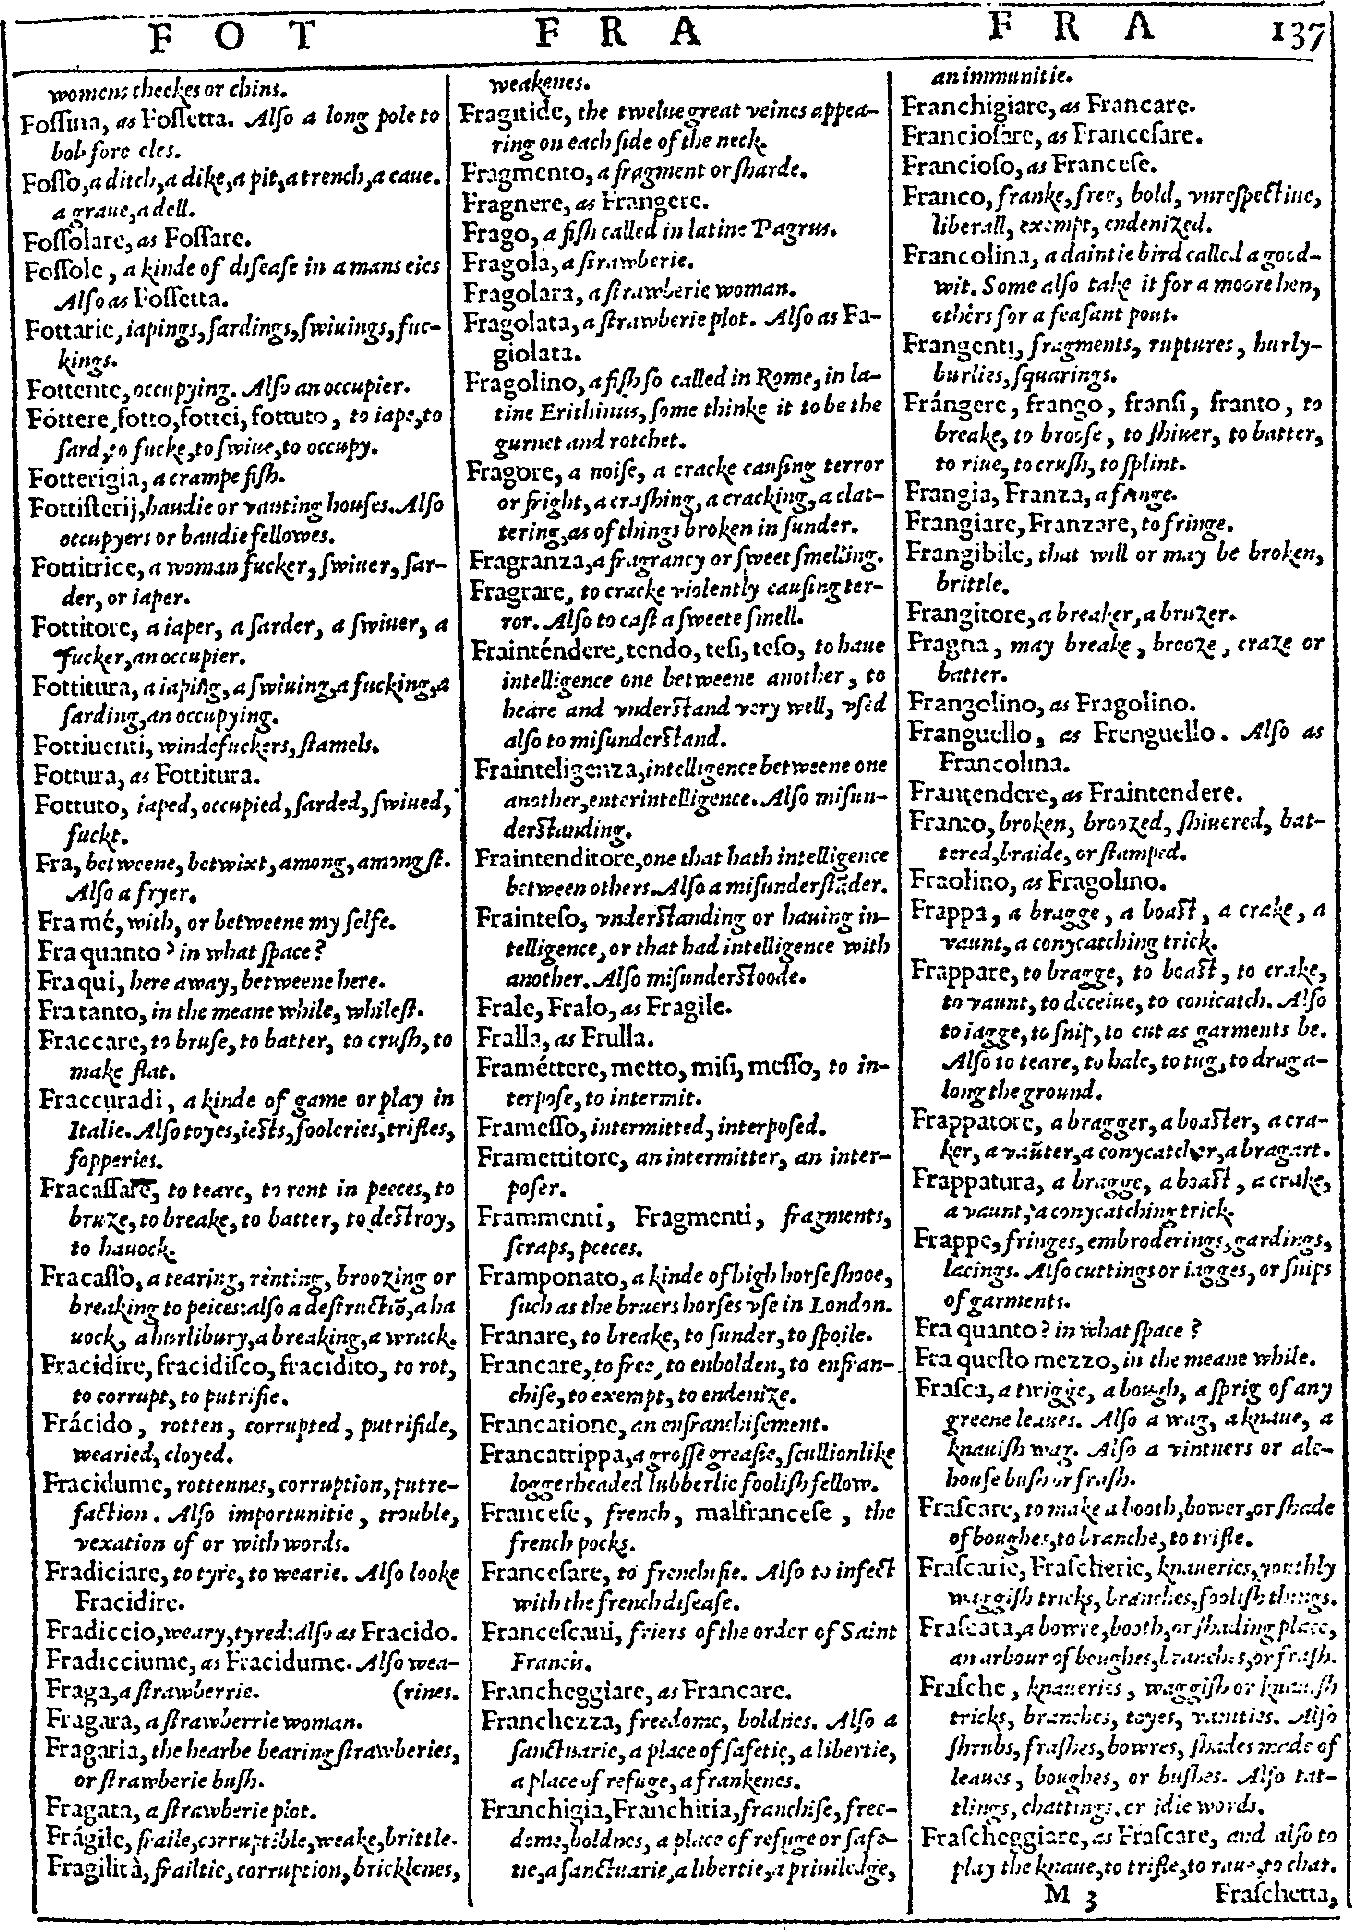 F O T F R A F R A 137
womens cheekes or chins.
Foſſina, as Foſſetta. Alſo a long pole to
bob fore eles.
Foſſo, a ditch, a dike, a pit, a trench, a caue.
a graue, a dell.
Foſſolare, as Foſſare.
Foſſole, a kinde of diſeaſe in a mans eies
Alſo as Foſſetta.
Fottarie, iapings, ſardings, ſwiuings, fuc-
kings.
Fottente, occupying. Alſo an occupier.
Fóttere, fotto, fottei, fottuto, to iape, to
ſard, to fucke, to ſwiue, to occupy.
Fotterigia, a crampe fiſh.
Fottiſterij, baudie or vauting houſes. Alſo
occupyers or baudie fellowes.
Fottitrice, a woman fucker, ſwiuer, ſar-
der, or iaper.
Fottitore, a iaper, a ſarder, a ſwiuer, a
fucker, an occupier.
Fottitura, a iaping, a ſwiuing, a fucking, a
ſarding, an occupying.
Fottiuenti, windefuckers, ſtamels.
Fottura, as Fottitura.
Fottuto, iaped, occupied, ſarded, ſwiued,
fuckt.
Fra, betweene, betwixt, among, amongſt.
Alſo a fryer.
Fra mé, with, or betweene my ſelfe.
Fra quanto? in what ſpace?
Fra qui, here away, betweene here.
Fra tanto, in the meane while, whileſt.
Fraccare, to bruſe, to batter, to cruſh, to
make flat.
Fraccuradi, a kinde of game or play in
Italie. Alſo toyes, ieſts, fooleries, trifles,
fopperies.
Fracaſſare, to teare, to rent in peeces, to
bruze, to breake, to batter, to deſtroy,
to hauock.
Fracaſſo, a tearing, renting, broozing or
breaking to peices: alſo a deſtructiõ, a ha
uock, a hurlibury, a breaking, a wrack.
Fracidíre, fracidiſco, fracidito, to rot,
to corrupt, to putrifie.
Frácido, rotten, corrupted, putrifide,
wearied, cloyed.
Fracidume, rottennes, corruption, putre-
faction. Alſo importunitie, trouble,
vexation of or with words.
Fradiciare, to tyre, to wearie. Alſo looke
Fracidire.
Fradiccio, weary, tyred: Alſo as Fracido.
Fradicciume, as Fracidume. Alſo wea-
Fraga, a ſtrawberrie. (rines.
Fragara, a ſtrawberrie woman.
Fragaria, the hearbe bearing ſtrawberies,
or ſtrawberie buſh.
Fragata, a ſtrawberie plot.
Frágile, fraile, corruptible, weake, brittle.
Fragilità, frailtie, corruption, bricklenes,
weakenes.
Fragitide, the twelue great veines appea-
ring on each ſide of the neck.
Fragmento, a fragment or ſharde.
Fragnere, as Frangere.
Frago, a fiſh called in latine Pagrus.
Fragola, a ſtrawberie.
Fragolara, a ſtrawberie woman.
Fragolata, a ſtrawberie plot. Alſo as Fa-
giolata.
Fragolino, a fiſh ſo called in Rome, in la-
tine Erithinus, ſome thinke it to be the
gurnet and rotchet.
Fragore, a noiſe, a cracke cauſing terror
or fright, a craſhing, a cracking, a clat-
tering, as of things broken in ſunder.
Fragranza, a fragrancy or ſweet ſmelling.
Fragrare, to cracke violently cauſing ter-
ror. Alſo to caſt a ſweete ſmell.
Frainténdere, tendo, teſi, teſo, to haue
intelligence one betweene another, to
heare and vnderſtand very well, vſed
alſo to miſunderſtand.
Frainteligenza, intelligence betweene one
another, enterintelligence. Alſo miſun-
derſtanding.
Fraintenditore, one that hath intelligence
between others. Alſo a miſunderſtãder.
Frainteſo, vnderſtanding or hauing in-
telligence, or that had intelligence with
another. Alſo miſunderſtoode.
Frale, Fralo, as Fragile.
Fralla, as Frulla.
Framéttere, metto, miſi, meſſo, to in-
terpoſe, to intermit.
Frameſſo, intermitted, interpoſed.
Framettitore, an intermitter, an inter-
poſer.
Frammenti, Fragmenti, fragments,
ſcraps, peeces.
Framponato, a kinde of high horſe ſhooe,
ſuch as the bruers horſes vſe in London.
Franare, to breake, to ſunder, to ſpoile.
Francare, to free, to enbolden, to enfran-
chiſe, to exempt, to endenize.
Francatione, an enfranchiſement.
Francatrippa, a groſſe greaſie, ſcullionlike
loggerheaded lubberlie fooliſh fellow.
Franceſe, french, malfranceſe, the
french pocks.
Franceſare, to frenchifie. Alſo to infect
with the french diſeaſe.
Franceſcani, friers of the order of Saint
Francis.
Francheggiare, as Francare.
Franchezza, freedome, boldnes. Alſo a
ſanctuarie, a place of ſafetie, a libertie,
a place of refuge, a frankenes.
Franchigia, Franchitia, franchiſe, free-
dome, boldnes, a place of refuge or ſafe-
tie, a ſanctuarie, a libertie, a priuiledge,
an immunitie.
Franchigiare, as Francare.
Francioſare, as Franceſare.
Francioſo, as Franceſe.
Franco, franke, free, bold, vnreſpectiue,
liberall, exempt, endenized.
Francolina, a daintie bird called a good-
wit. Some alſo take it for a moore hen,
others for a feaſant pout.
Frangenti, fragments, ruptures, hurly-
burlies, ſquarings.
Frángere, frango, franſi, franto, to
breake, to brooſe, to ſhiuer, to batter,
to riue, to cruſh, to ſplint.
Frangia, Franza, a fringe.
Frangiare, Franzare, to fringe.
Frangibile, that will or may be broken,
brittle.
Frangitore, a breaker, a bruzer.
Fragna, may breake, brooze, craze or
batter.
Frangolino, as Fragolino.
Franguello, as Frenguello. Alſo as
Francolina.
Frantendere, as Fraintendere.
Franto, broken, broozed, ſhiuered, bat-
tered, braide, or ſtamped.
Fraolino, as Fragolino.
Frappa, a bragge, a boaſt, a crake, a
vaunt, a conycatching trick.
Frappare, to bragge, to boaſt, to crake,
to vaunt, to deceiue, to conicatch. Alſo
to iagge, to ſnip, to cut as garments be.
Alſo to teare, to hale, to tug, to drug a-
long the ground.
Frappatore, a bragger, a boaſter, a cra-
ker, a vaũter, a conycatcher, a bragart.
Frappatura, a bragge, a boaſt, a crake,
a vaunt, a conycatching trick.
Frappe, fringes, embroderings, gardings,
lacings. Alſo cuttings or iagges, or ſnips
of garments.
Fra quanto? in what ſpace?
Fra queſto mezzo, in the meane while.
Fraſca, a twigge, a bough, a ſprig of any
greene leaues. Alſo a wag, a knaue, a
knauiſh wag. Alſo a vintners or ale-
houſe buſh or fraſh.
Fraſcare, to make a booth, bower, or ſhade
of boughes, to branche, to trifle.
Fraſcarie, Fraſcherie, knaueries, youthly
waggiſh tricks, branches, fooliſh things.
Fraſcata, a bowre, booth, or ſhading place,
an arbour of boughes, branches, or fraſh.
Fraſche, knaueries, waggiſh or knauiſh
tricks, branches, toyes, vanities. Alſo
ſhrubs, fraſhes, bowres, ſhades made of
leaues, boughes, or buſhes. Alſo tat-
tlings, chattings, or idle words.
Fraſcheggiare, as Fraſcare, and alſo to
play the knaue, to trifle, to raue, to chat.
M 3 Fraſchetta,